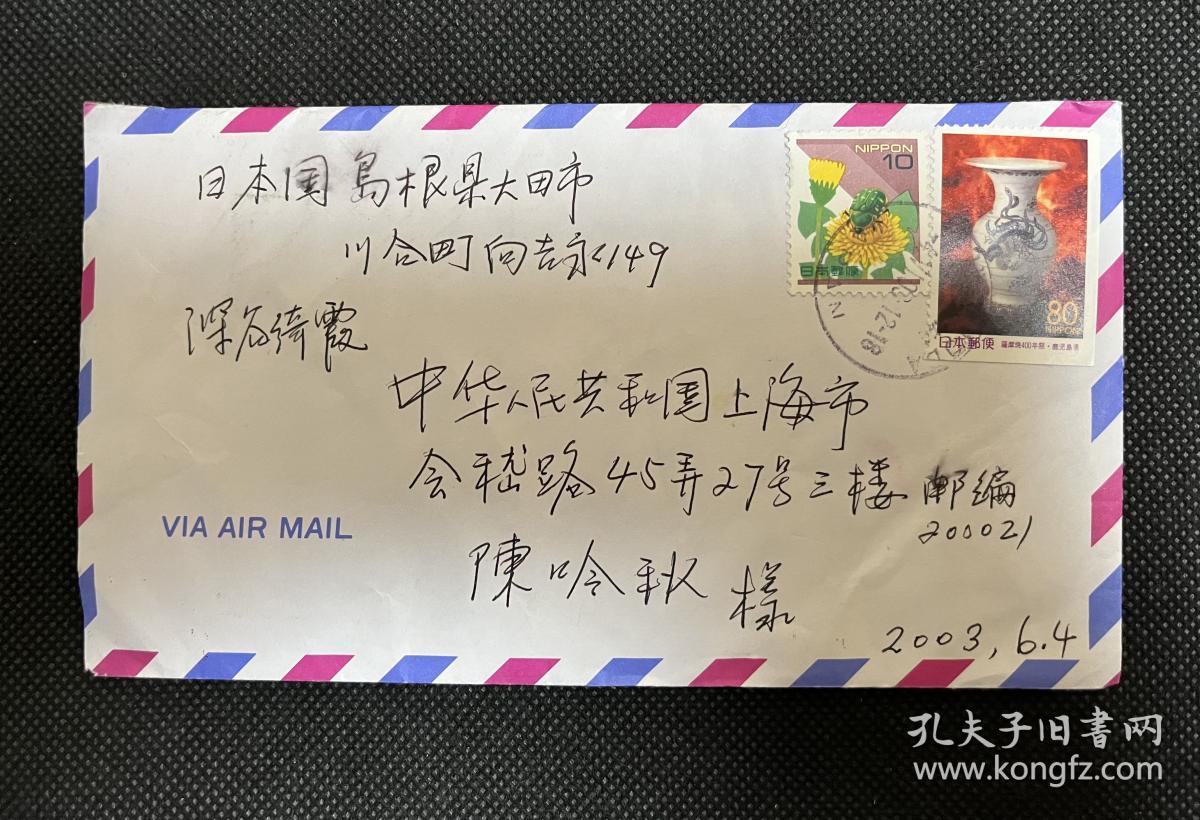 日本国島根県大田市
川合町向吉永149
深谷綺霞
NIPPON
10
日本郵便
80
NIPPON
日本郵便 薩摩焼400年祭・鹿児島県
中华人民共和国上海市
会嵇路45弄27号三楼 邮编
200021
VIA AIR MAIL
陳吟秋 様
2003,6.4
孔夫子旧书网
www.kongfz.com